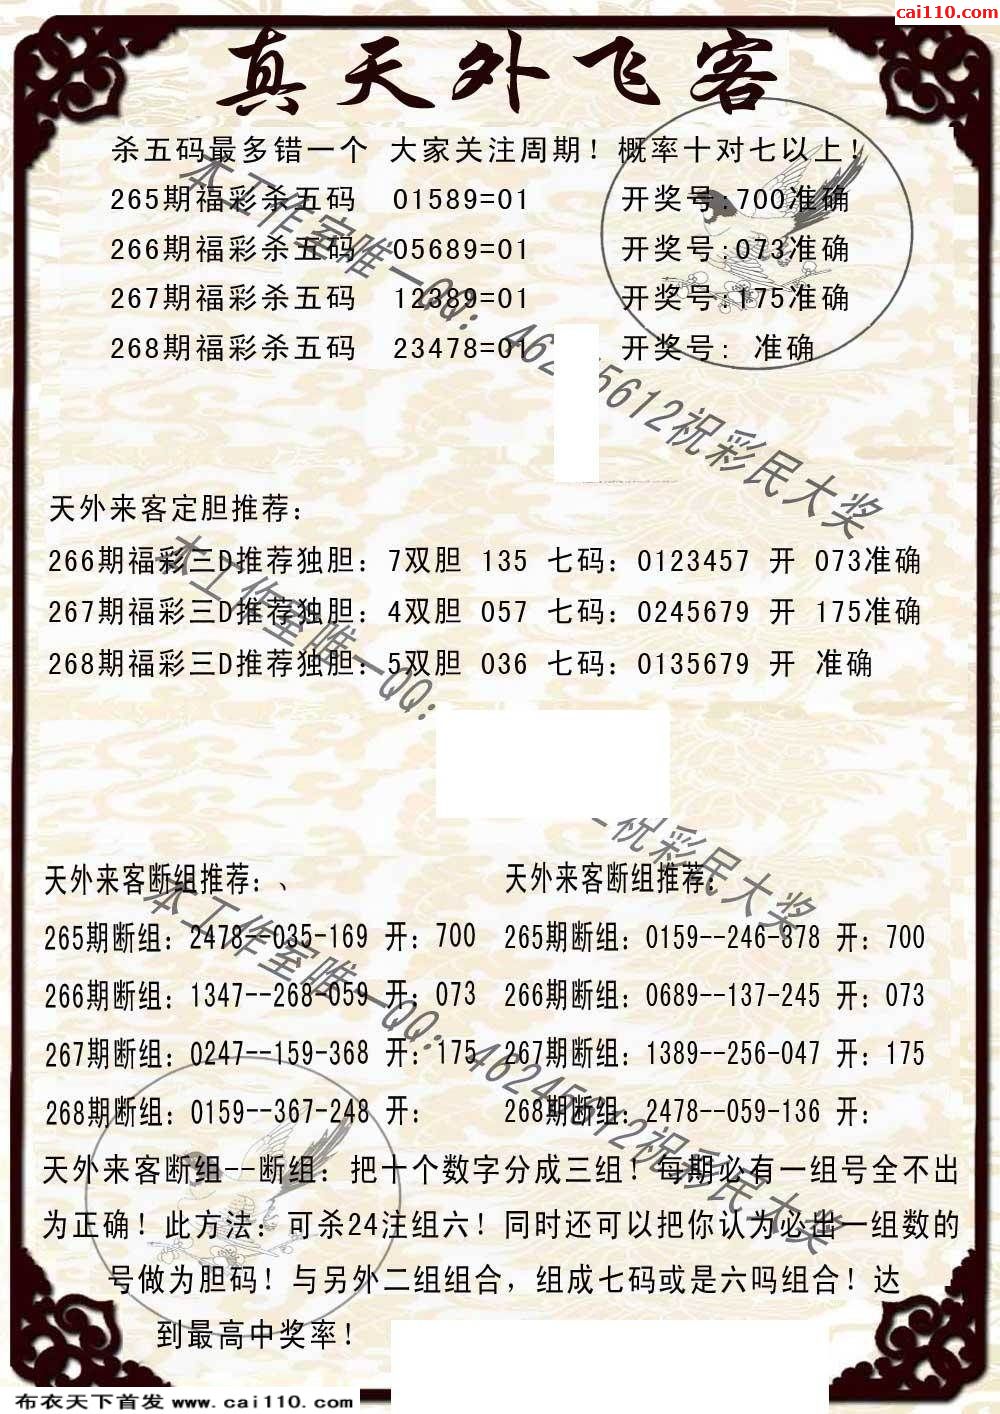 cai110.com
真天外飞客
杀五码最多错一个 大家关注周期！概率十对七以上！
265期福彩杀五码 01589=01 开奖号:700准确
266期福彩杀五码 05689=01 开奖号:073准确
267期福彩杀五码 12389=01 开奖号:175准确
268期福彩杀五码 23478=01 开奖号: 准确
本工作室唯一QQ: 462 5612祝彩民大奖
天外来客定胆推荐：
266期福彩三D推荐独胆：7双胆 135 七码：0123457 开 073准确
267期福彩三D推荐独胆：4双胆 057 七码：0245679 开 175准确
268期福彩三D推荐独胆：5双胆 036 七码：0135679 开 准确
本工作室唯一QQ: 祝彩民大奖
天外来客断组推荐：、 天外来客断组推荐：
265期断组：2478--035-169 开：700 265期断组：0159--246-378 开：700
266期断组：1347--268-059 开：073 266期断组：0689--137-245 开：073
267期断组：0247--159-368 开：175 267期断组：1389--256-047 开：175
268期断组：0159--367-248 开： 268期断组：2478--059-136 开：
本工作室唯一QQ: 46245612祝彩民大奖
天外来客断组--断组：把十个数字分成三组！每期必有一组号全不出
为正确！此方法：可杀24注组六！同时还可以把你认为必出一组数的
号做为胆码！与另外二组组合，组成七码或是六吗组合！达
到最高中奖率！
布衣天下首发 www.cai110.com